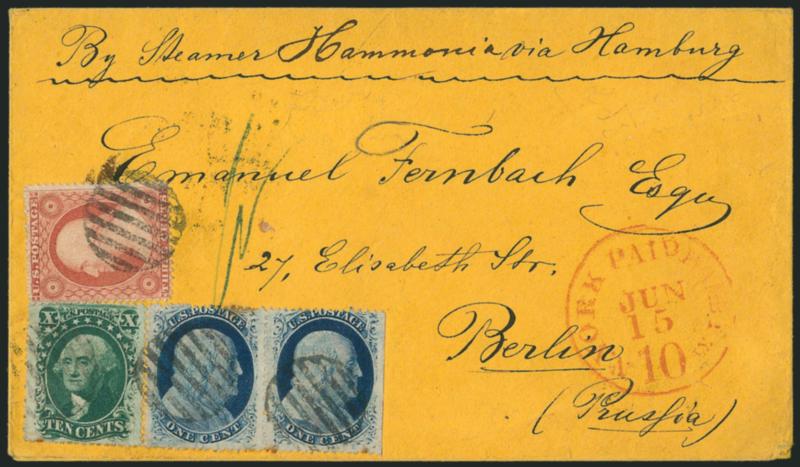 By Steamer Hammonia via Hamburg
Emanuel Fernbach Esqu
27, Elisabeth Str.
Berlin
(Prussia)
U.S. POSTAGE
THREE CENTS
X U.S. POSTAGE X
TEN CENTS
U.S. POSTAGE
ONE CENT
U.S. POSTAGE
ONE CENT
YORK PAID
JUN
15
10